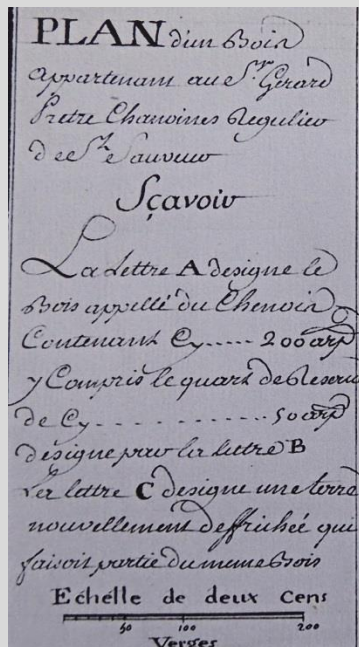 PLAN d'un Bois
appartenant au Sr. Gerard
Pretre Chanoines Regulier
de St. Sauveur
Sçavoir
La Lettre A designe le
Bois appellé du Chenois
Contenant Cy..... 200 arp
y Compris le quart de Reserve
de Cy............ 50 arp
designe par la lettre B
La lettre C designe une terre
nouvellement deffrichée qui
faisoit partie du meme Bois
Echelle de deux Cens
50 100 200
Verges